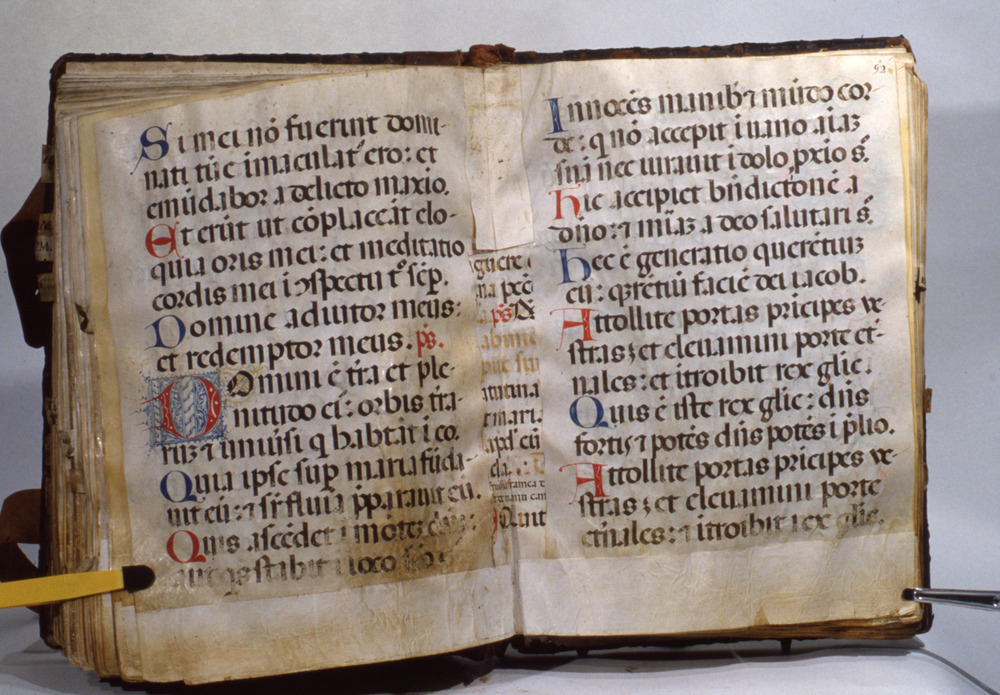 Si mei nō fuerint domi-
nati tūc imaculat᾽ ero: et
emūdabor a delicto maxio.
Et erūt ut cōplaceāt elo-
quia oris mei: et meditatio
cordis mei i ɔspectu t᾽ sēp.
Domine adiutor meus:
et redemptor meus. ps.
Domini ē tr̄a et ple-
nitudo ei᾽: orbis tr̄a-
ruꝫ ⁊ uniuīsi q habitāt i eo.
Quia ipse sup maria fūda-
uit eū: ⁊ sr̄ flūīa p̄parauit eū.
Quis ascēdet i mōtē
aut qs stabit i loco
62
Innocēs manibꝫ ⁊ mūdo cor-
de: q nō accepit i uano aīaꝫ
suā nec iurauit i dolo pxīo s᾽.
Hic accipiet bn̄dictōnē a
dn̄o: ⁊ mīaꝫ a deo salutari s᾽.
Hec ē generatio querētiuꝫ
eū: q̄rētiū faciē dei iacob.
Attollite portas prīcipes ve-
stras; et eleuamini porte et-
nales: et itroibit rex glīe.
Quis ē iste rex glīe: dn̄s
fortis ⁊ potēs dn̄s potēs i p̄lio.
Attollite portas prīcipes ve-
stras; et eleuamini porte
et̄nales: ⁊ itroibit rex glīe.